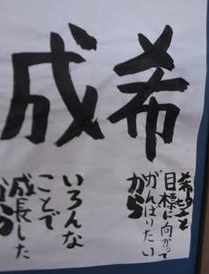 希
希望と
目標に向かって
がんばりたい
から
成
いろんな
ことで
成長した
いから